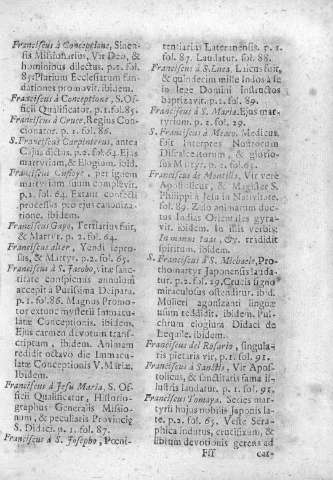 Franciscus à Conceptione, Sinen-
sis Missionarius, Vir Deo, &
hominibus dilectus. p. 2. fol.
85. Plurium Ecclesiarum fun-
dationes promovit. ibidem.
Franciscus à Conceptione, S. Of-
ficii Qualificator. p. 1. fol. 85.
Franciscus à Cruce, Regius Con-
cionator. p. 1. fol. 86.
S. Franciscus Carpinterus, antea
Cajus dictus. p. 2. fol. 64. Ejus
martyrium, & Elogium. ibid.
Franciscus Cufioye, per ignem
martyrium suum complevit.
p. 2. fol. 64. Extant confecti
processus pro ejus canoniza-
tione. ibidem.
Franciscus Gayo, Tertiarius fuit,
& Martyr. p. 2. fol. 64.
Franciscus alter, Tendi repres-
sus, & Martyr. p. 2. fol. 65.
Franciscus à S. Jacobo, vitæ sanc-
titate conspicuus annulum
accepit à Purissima Deipara.
p. 1. fol. 86. Magnus Promo-
tor extunc mysterii Immacu-
latæ Conceptionis. ibidem.
Ejus carmen devotum trans-
criptum, ibidem. Animam
reddidit octavo die Immacu-
latæ Conceptionis V. Mariæ,
ibidem.
Franciscus à Jesu Maria, S. Of-
ficii Qualificator, Historio-
graphus Generalis Missio-
num, & peculiaris Provinciæ
S. Didaci. p. 1. fol. 87.
Franciscus à S. Josepho, Pœni-
tentiarius Lateranensis. p. 1.
fol. 87. Laudatur. fol. 88.
Franciscus à S. Luca, Lucus fuit,
& quindecim mille Indos à se
in lege Domini instructos
baptizavit. p. 2. fol. 89.
Franciscus à S. Maria. Ejus mar-
tyrium. p. 2. fol. 29.
S. Franciscus à Meaco, Medicus,
fuit Interpres Nostrorum
Discalceatorum, & glorio-
sus Martyr. p. 2. fol. 64.
Franciscus de Montilla, Vir verè
Apostolicus, & Magister S.
Philippi à Jesu in Novitiatu.
fol. 89. Zelo animarum duc-
tus Indias Orientales gyra-
vit. ibidem. In illis verbis:
In manus tuas, &c. tradidit
spiritum. ibidem.
S. Franciscus à S. Michaele, Pro-
thomartyr Japonensis lauda-
tur. p. 2. fol. 29. Crucis signo
miraculosus ostenditur. ibid.
Mulieri agonizanti linguæ
usum reddidit. ibidem. Pul-
chrum elogium Didaci de
Lequile. ibidem.
Franciscus del Rosario, singula-
ris pietatis vir. p. 1. fol. 91.
Franciscus à Sanctis, Vir Apos-
tolicus, & sanctitatis fama il-
lustris laudatur. p. 1. fol. 91.
Franciscus Tomaya. Series mar-
tyrii hujus nobilis Japonis la-
te. p. 2. fol. 65. Veste Sera-
phica indutus, crucifixum, &
libitum devotionis gerens ad
Fff
cat-